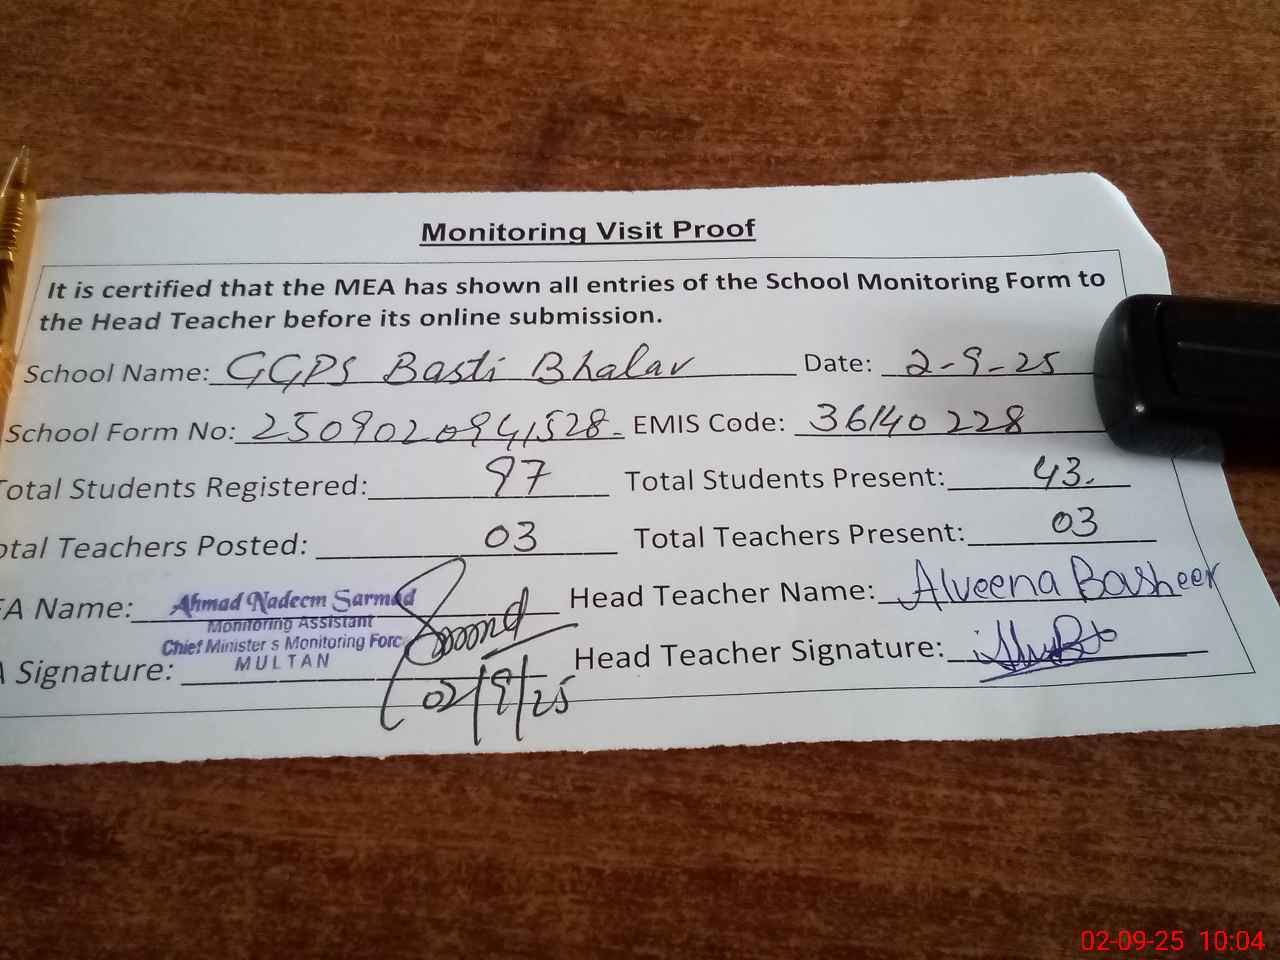 Monitoring Visit Proof
It is certified that the MEA has shown all entries of the School Monitoring Form to
the Head Teacher before its online submission.
School Name: GGPS Basti Bhalar Date: 2-9-25
School Form No: 2509020941528. EMIS Code: 36140228
Total Students Registered: 97 Total Students Present: 43.
otal Teachers Posted: 03 Total Teachers Present: 03
EA Name: Ahmad Nadeem Sarmad Head Teacher Name: Alveena Basheer
Monitoring Assistant
Chief Minister s Monitoring Forc
MULTAN
A Signature: Head Teacher Signature:
02/9/25
02-09-25 10:04